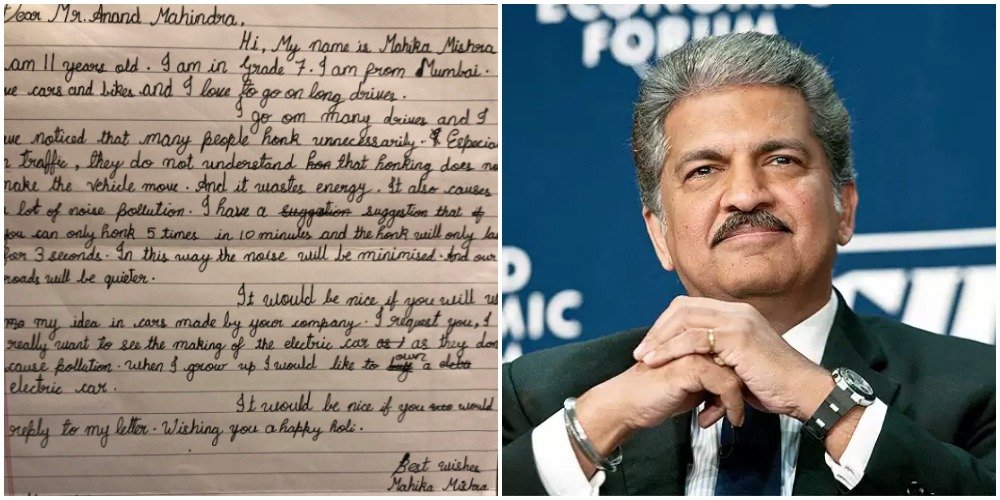 Dear Mr. Anand Mahindra,
Hi, My name is Mahika Mishra
am 11 years old. I am in Grade 7. I am from Mumbai.
ve cars and bikes and I love to go on long drives.
I go on many drives and I
ve noticed that many people honk unnecessarily. Especia
n traffic, they do not understand hon that honking does no
make the vehicle move. And it wastes energy. It also causes
a lot of noise pollution. I have a suggestion that if
you can only honk 5 times in 10 minutes and the honk will only la
for 3 seconds. In this way the noise will be minimised. And our
roads will be quieter.
It would be nice if you will us
my idea in cars made by your company. I request you, I
really want to see the making of the electric car as as they don
cause pollution. When I grow up I would like to own a
electric car.
It would be nice if you would
reply to my letter. Wishing you a happy holi.
Best wishes
Mahika Mishra
ECONOMIC
FORUM
D
MIC